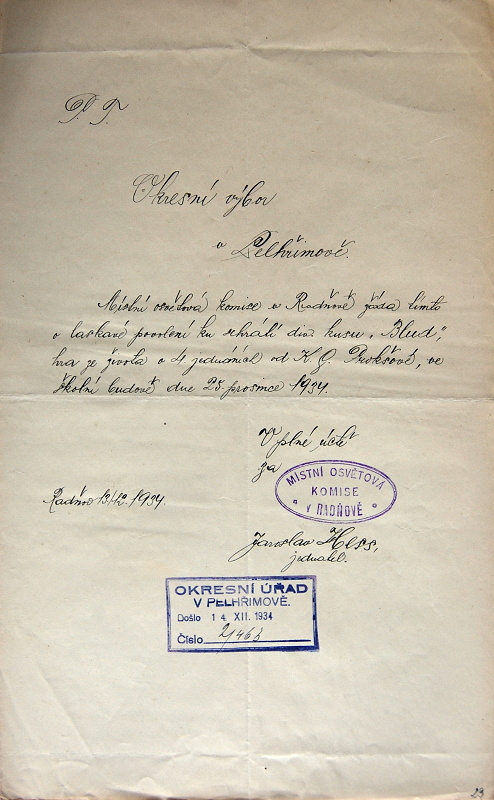 P. T.
Okresní výbor
v Pelhřimově.
Místní osvětová komise v Radňově žáda tímto
o laskavé povolení ku sehrátí div. kusu „Blud",
hra ze života o 4 jednáních od K. Prokšová, ve
školní budově dne 25. prosince 1934.
V plné úctě
za
MÍSTNÍ OSVĚTOVÁ
KOMISE
V RADŇOVĚ
Radňov 13/12. 1934.
Jaroslav Hess,
jednatel.
OKRESNÍ ÚŘAD
V PELHŘIMOVĚ.
Došlo 14. XII. 1934
Číslo 21463
23